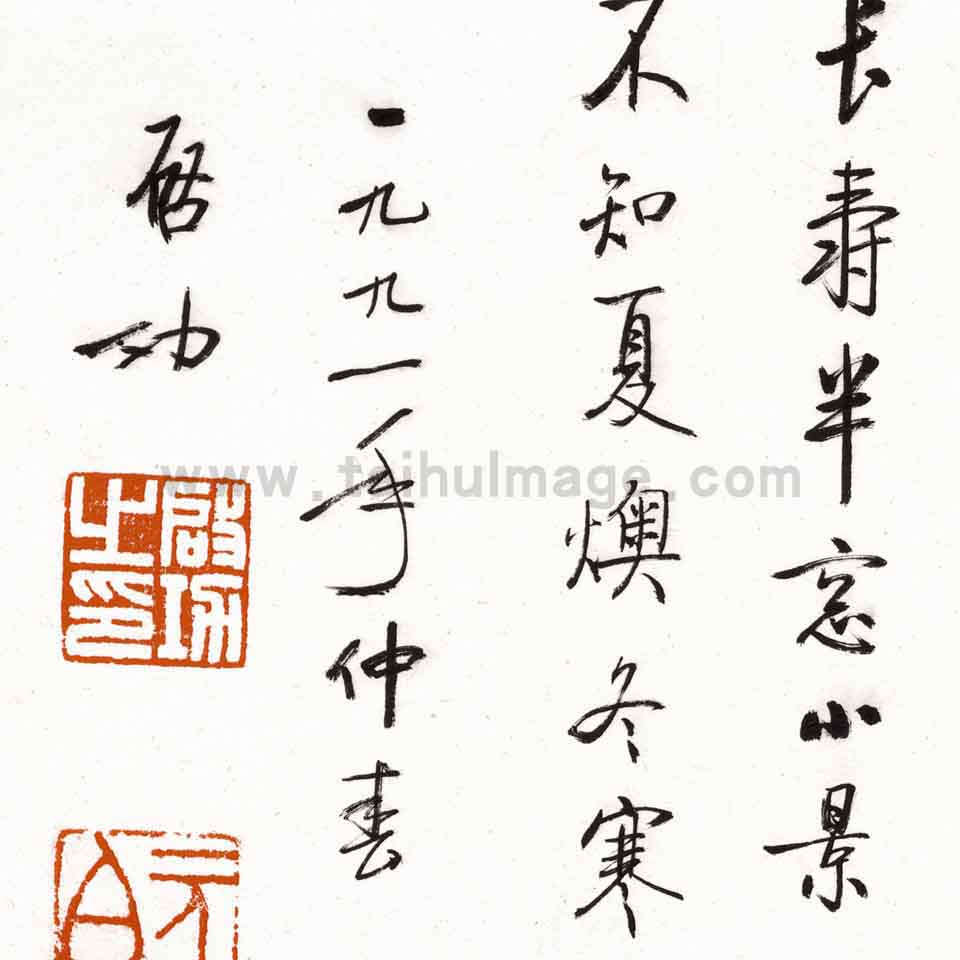 长寿半窓小景
不知夏燠冬寒
一九九一年仲春
启功
啟功之印
元白
www.taihuImage.com